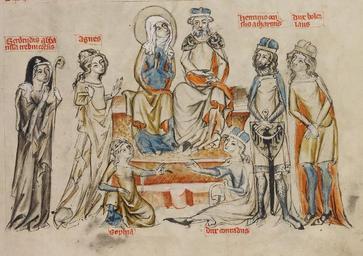 Gerdrudis abba
tissa trebnicensis
agnes
sus a thartaris
dux boles
laus
sophia
dux conradus